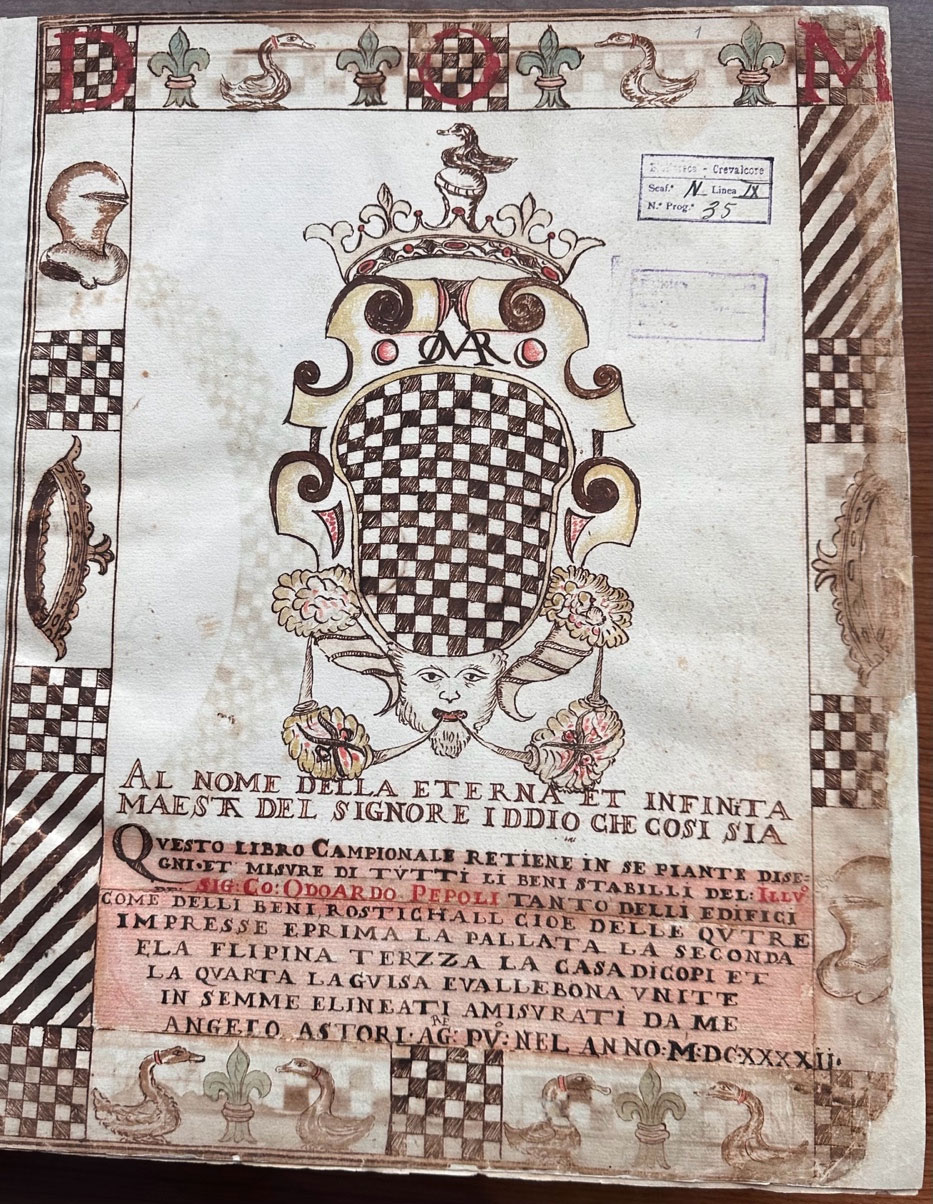 D O M
1
Crevalcore
Scaf.ª N Linea IX
N.º Prog.º 35
AL NOME DELLA ETERNA ET INFINITA
MAESTA DEL SIGNORE IDDIO CHE COSI SIA
QVESTO LIBRO CAMPIONALE RETIENE IN SE PIANTE DISE-
GNI·ET MISVRE DI TVTTI LI BENI STABILLI DEL· ILLVº
SIG: CO: ODOARDO PEPOLI TANTO DELLI EDIFICI
COME DELLI BENI, ROSTICHALL CIOE DELLE QVTRE
IMPRESSE EPRIMA LA PALLATA LA SECONDA
ELA FLIPINA TERZZA LA CASA DICOPI ET
LA QVARTA LAGVISA EVALLEBONA VNITE
IN SEMME ELINEATI AMISVRATI DA ME
ANGELO ASTORI·AG:RE PV:º NEL ANNO·M·DCXXXXII·